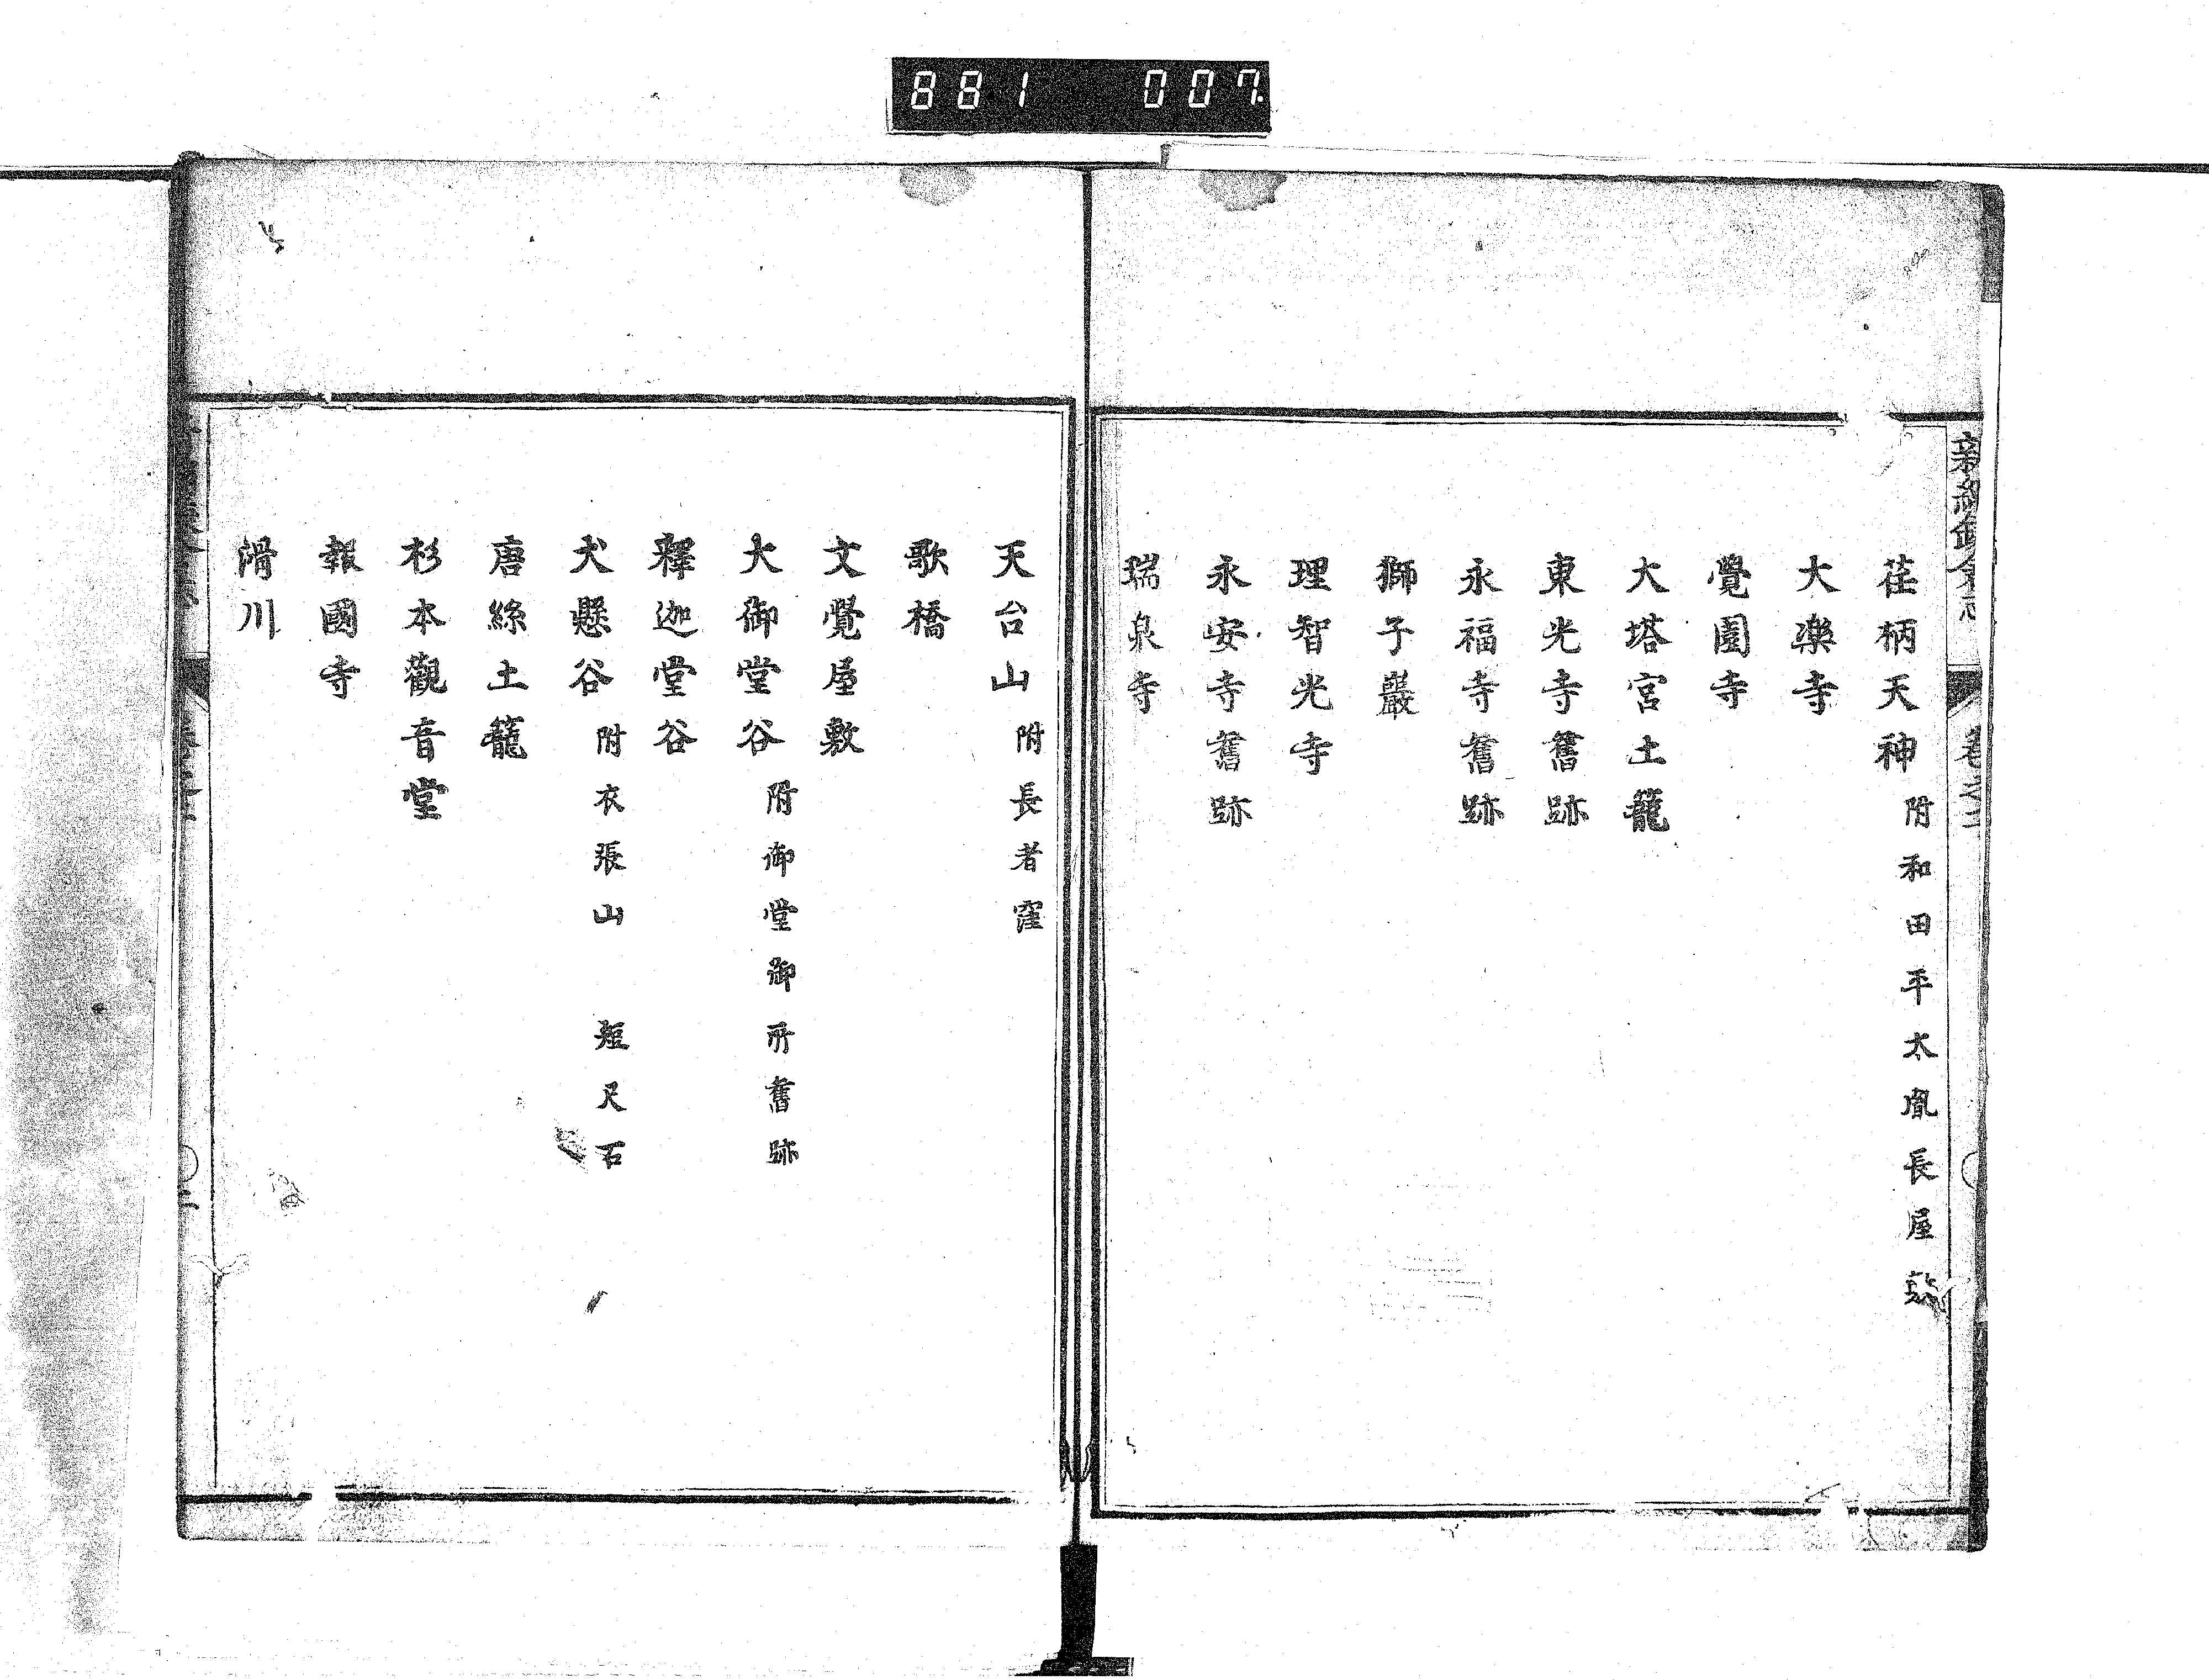 881 007
荏柄天神 附和田平太胤長屋敷
大楽寺
覺園寺
大塔宮土籠
東光寺舊跡
永福寺舊跡
獅子巖
理智光寺
永安寺舊跡
瑞泉寺
天台山 附長者窪
歌橋
文覺屋敷
大御堂谷 附御堂御所舊跡
釋迦堂谷
犬懸谷 附衣張山 短尺石
唐絲土籠
杉本觀音堂
報國寺
滑川